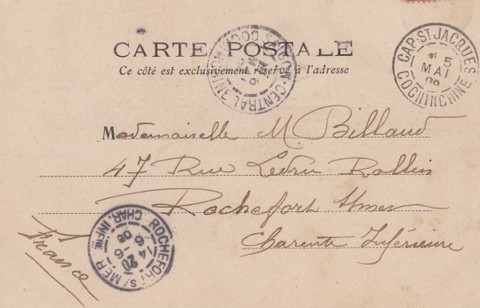 CARTE POSTALE
Ce côté est exclusivement réservé à l'adresse
CAP-ST JACQUES
5
MAI
COCHINCHINE
Mademoiselle M. Billaud
47 Rue Ledru Rollin
Rochefort s/mer
Charente Inférieure
France
ROCHEFORT S/ MER
20
14-6
06
CHAR. INFRE